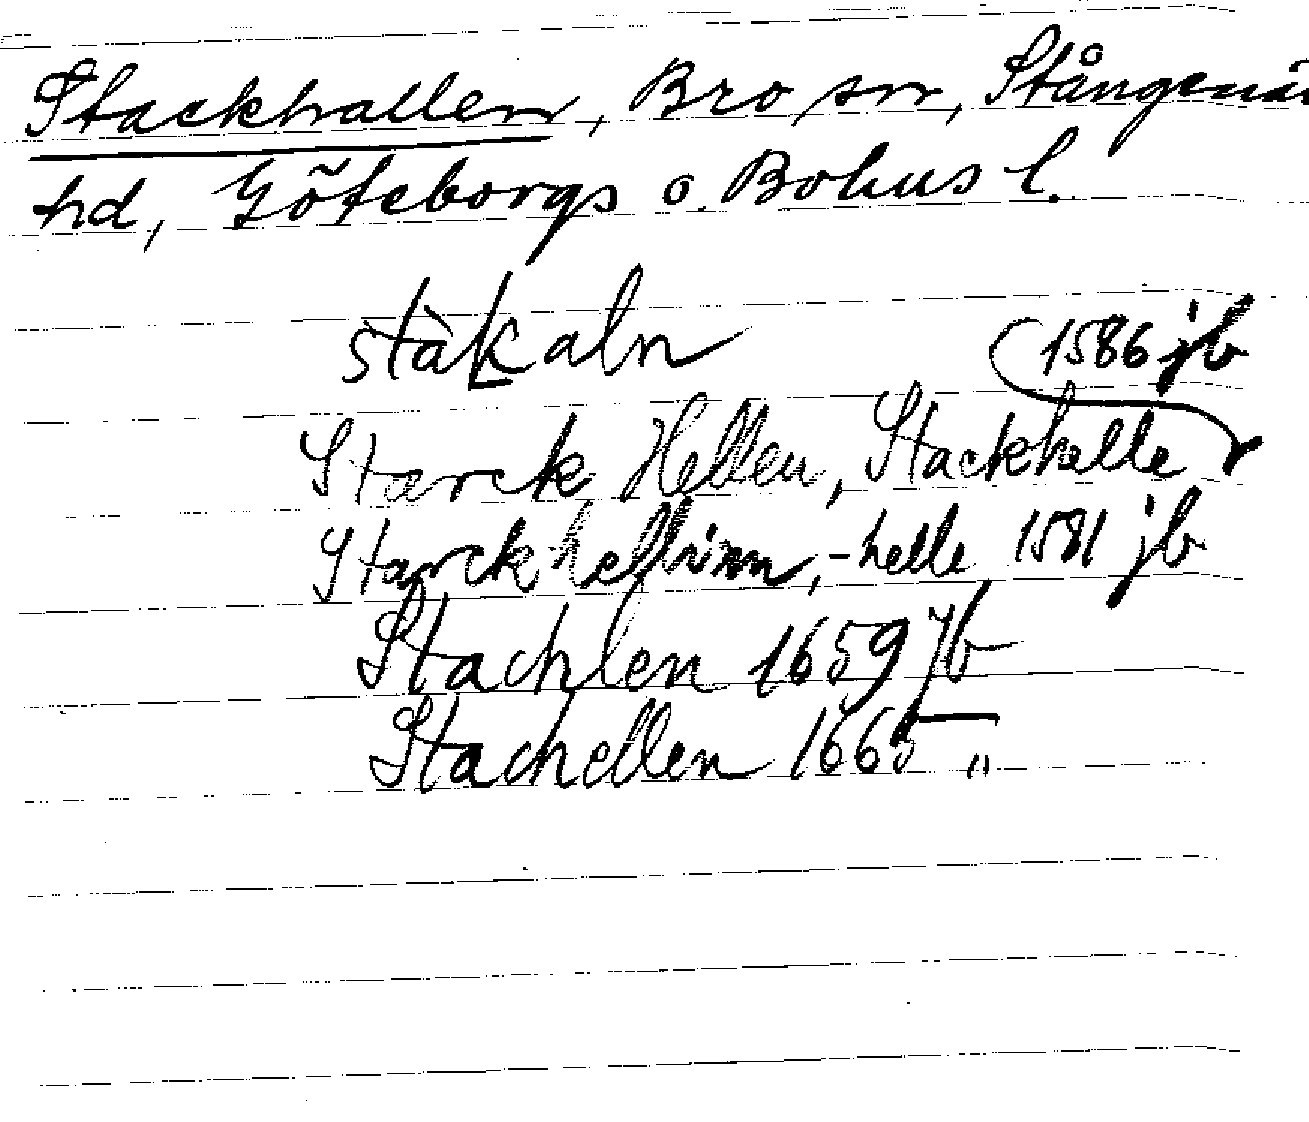 Stackhallen, Bro sn, Stångenäs
hd, Göteborgs o. Bohus l.
stàkaln
1586 jb
Starck Hellen, Stackhelle
Starckhellinn, -helle 1581 jb
Stachlen 1659 Jb
Stachellen 1665 "